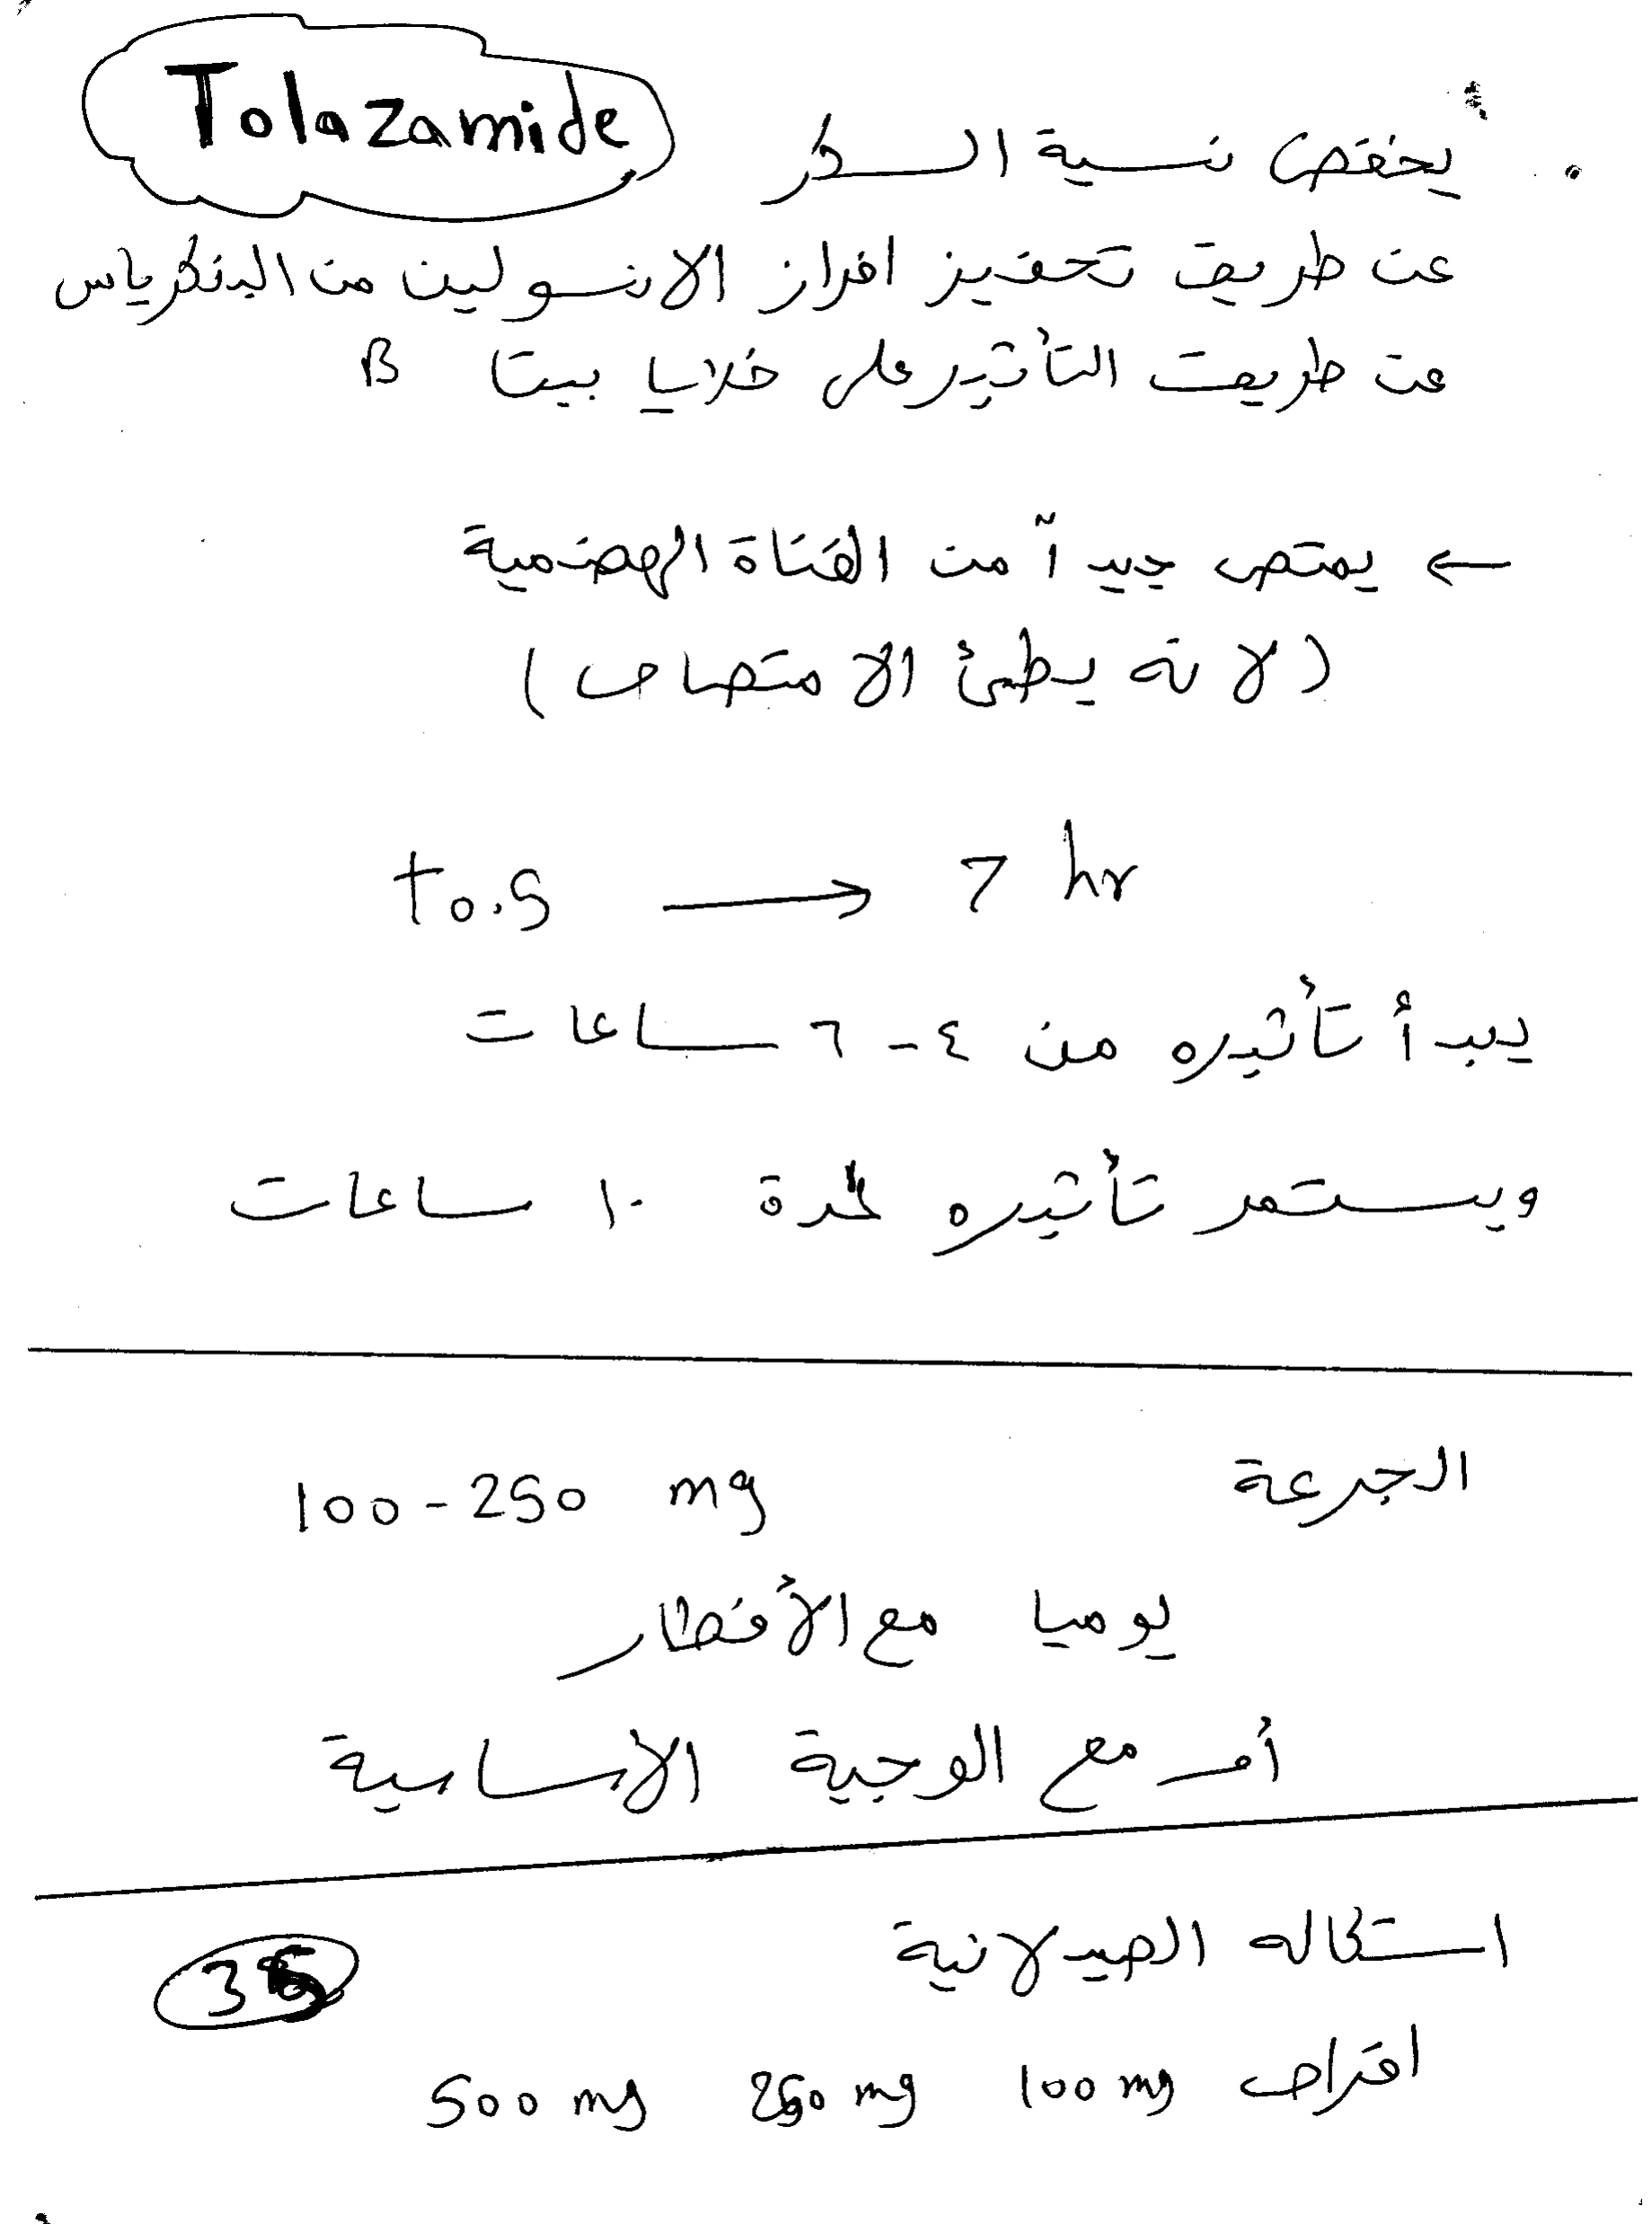 Tolazamide
• يخفض نسبة السكر
عن طريق تحفيز افراز الانسولين من البنكرياس
عن طريق التأثير على خلايا بيتا B
← يمتص جيداً من القناة الهضمية
(لانه بطئ الامتصاص)
t0.5 → 7 hr
يبدأ تأثيره من ٤ - ٦ ساعات
ويستمر تأثيره لمدة ١٠ ساعات
الجرعة 100 - 250 mg
يوميا مع الأفطار
أو مع الوجبة الأساسية
اشكاله الصيدلانية
اقراص 100 mg 250 mg 500 mg